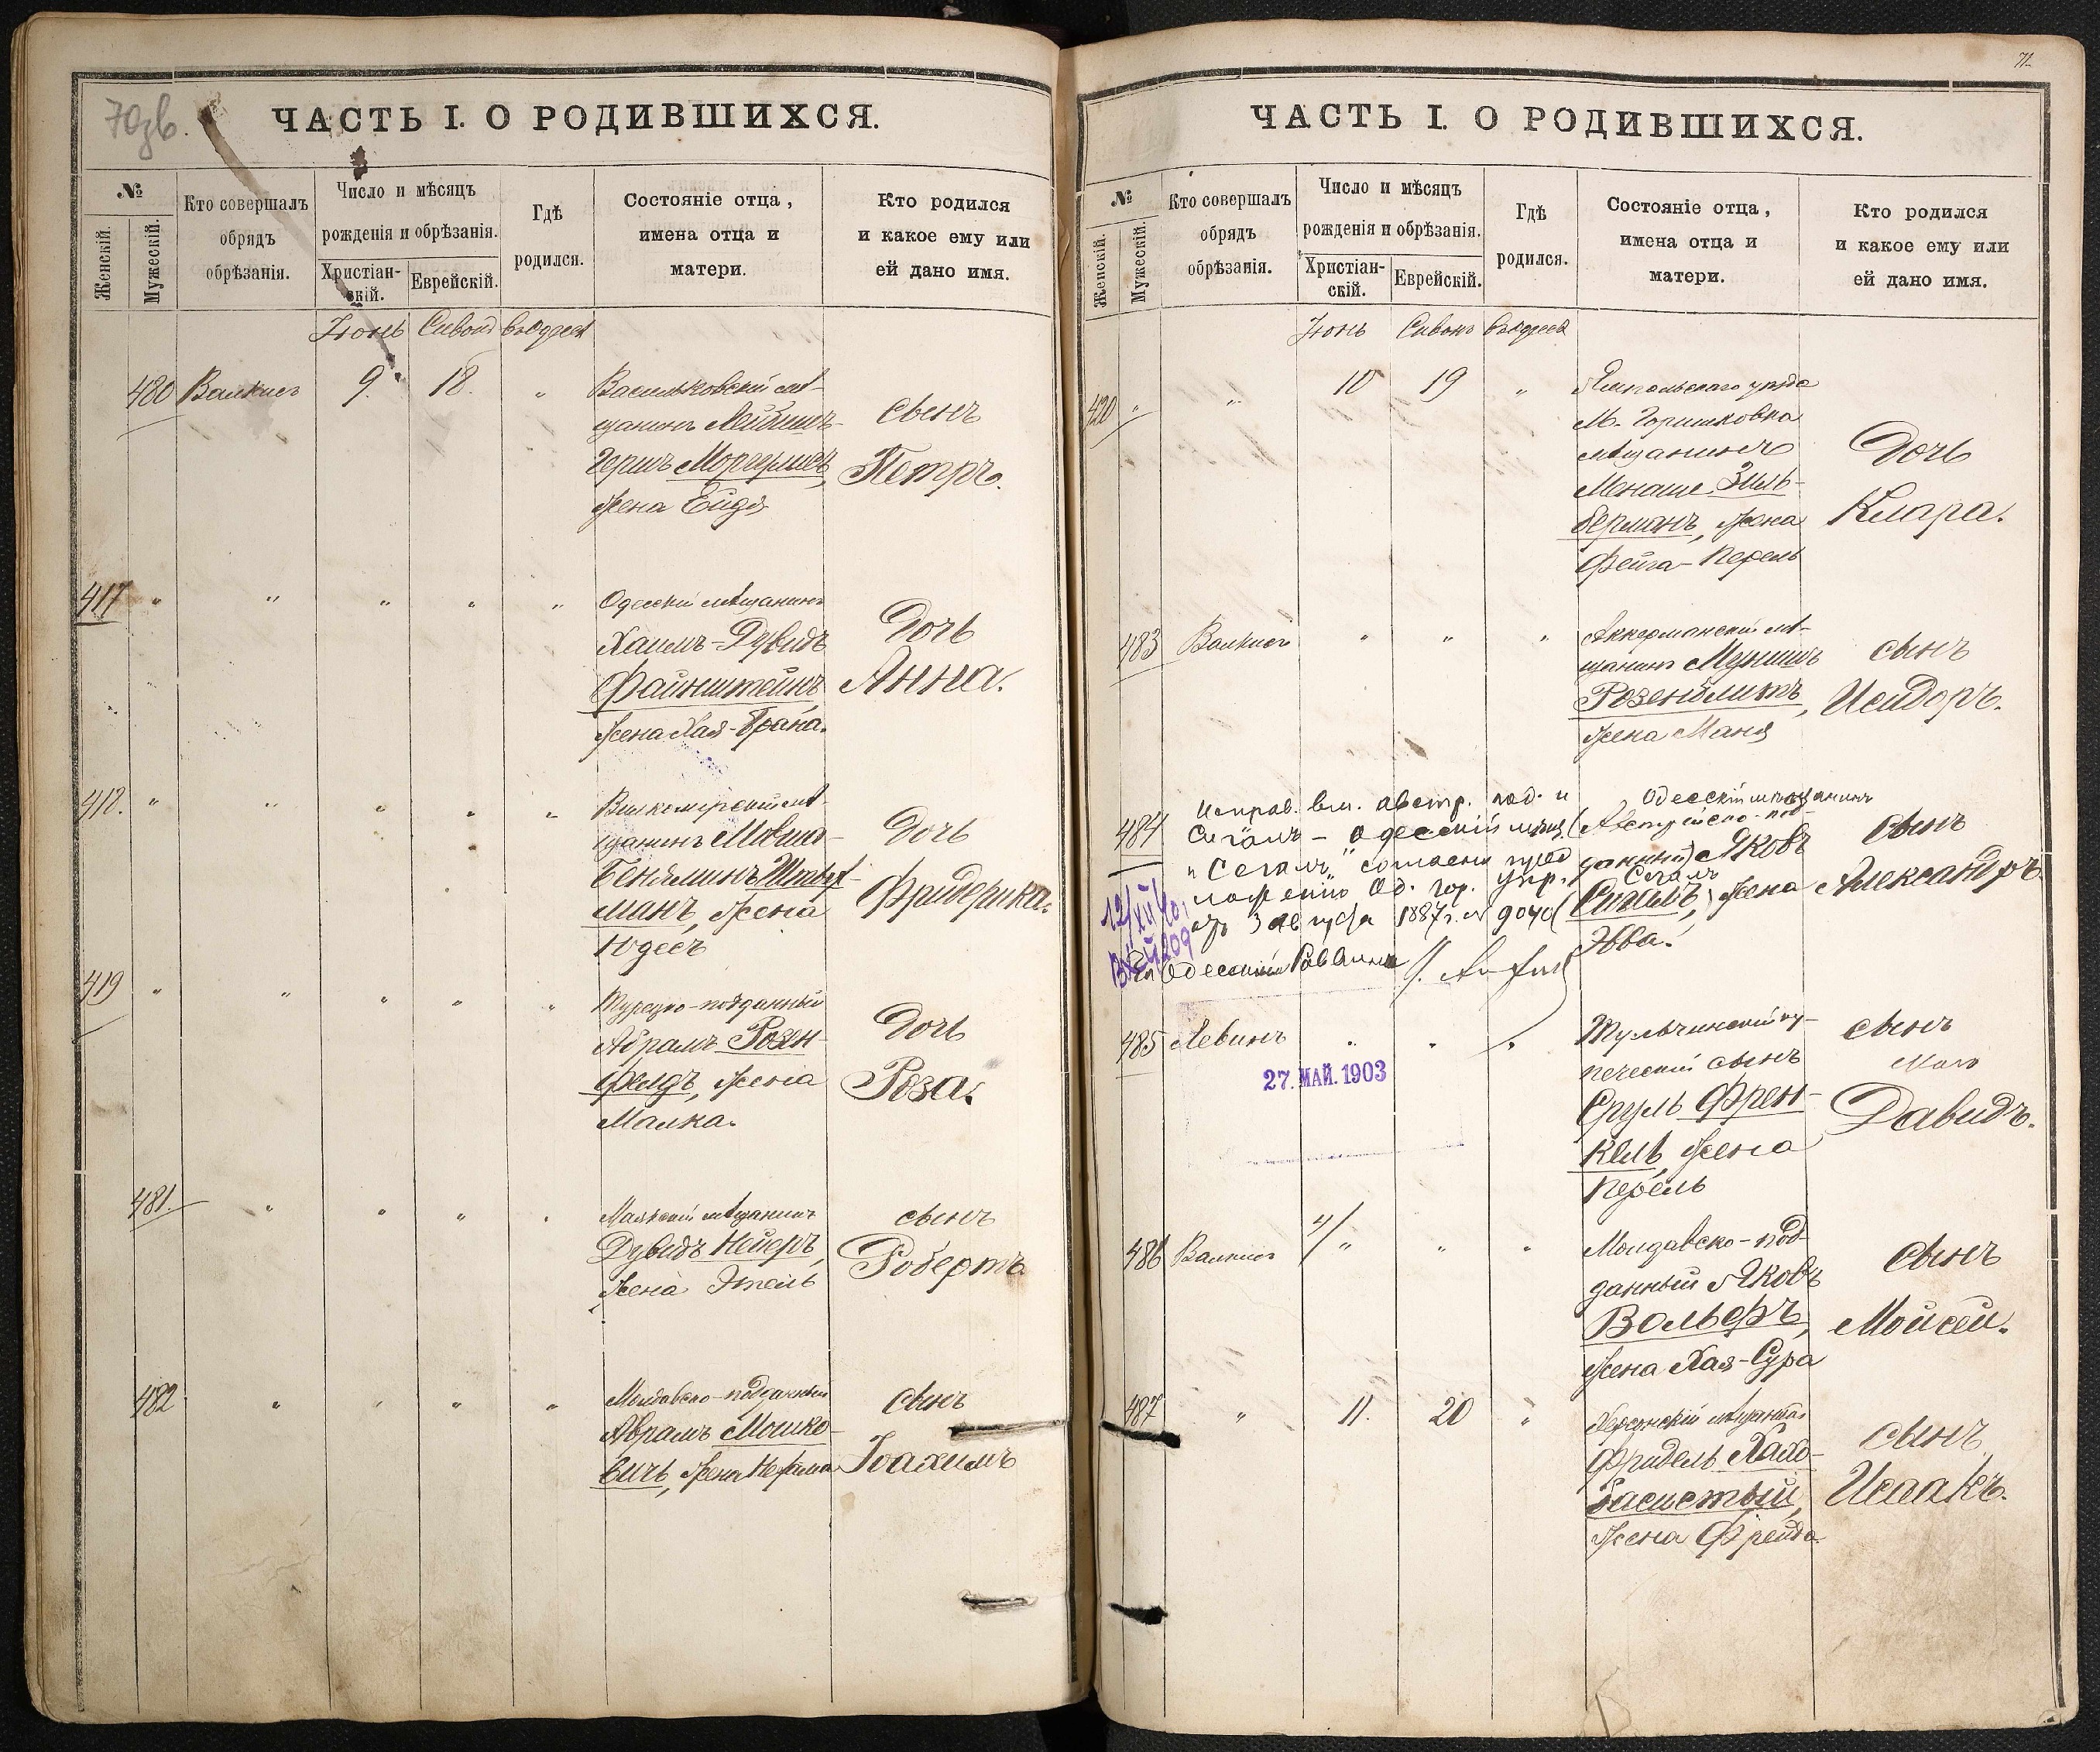 70зв.
ЧАСТЬ I. О РОДИВШИХСЯ.
№
Женскій.
Мужескій.
Кто совершалъ
обрядъ
обрѣзанія.
Число и мѣсяцъ
рожденія и обрѣзанія.
Христіан-
скій.
Еврейскій.
Гдѣ
родился.
Состояніе отца,
имена отца и
матери.
Кто родился
и какое ему или
ей дано имя.
Іюнь Сиванъ въ Одессѣ
480 Валкисъ 9. 18. "
Васильковскій мѣ-
щанинъ Лейбишъ-
Гершъ Моргулисъ,
жена Ейдя
сынъ
Петръ.
417 " " " " "
Одесскій мѣщанинъ
Хаимъ-Дувидъ
Файнштейнъ
жена Хая-Брана.
Дочь
Анна.
418. " " " " "
Вилкомирскій мѣ-
щанинъ Мовша-
Беньяминъ
манъ, жена
Юдесъ
Дочь
Фридерика.
419 " " " " "
Турецко-подданный
Абрамъ Розен-
фельдъ, жена
Малка.
Дочь
Роза.
481. " " " "
Маякскій мѣщанинъ
Дувидъ Нейеръ,
жена Этель
сынъ
Робертъ
482 " " " "
Молдавско-подданный
Абрамъ Мошко-
вичъ, жена Нехама
сынъ
Іоахимъ
71
ЧАСТЬ I. О РОДИВШИХСЯ.
№
Женскій.
Мужескій.
Кто совершалъ
обрядъ
обрѣзанія.
Число и мѣсяцъ
рожденія и обрѣзанія.
Христіан-
скій.
Еврейскій.
Гдѣ
родился.
Состояніе отца,
имена отца и
матери.
Кто родился
и какое ему или
ей дано имя.
Іюнь Сиванъ въ Одессѣ
420 " " 10 19 "
Ямпольскаго уѣзда
м. Горишковка
мѣщанинъ
Менаше Зиль-
берманъ, жена
Фейга-Перель
Дочь
Клара.
483 Валкисъ " " "
Аккерманскій мѣ-
щанинъ Мунишъ
Розенблитъ,
жена Маня
сынъ
Исидоръ.
484
Исправ. вм. австр. под. и
Сигалъ - Одесскій мѣщ.
"Сегалъ" согласно пред
ложенію Од. гор. упр.
отъ 3 августа 1887 г. №9040
Одесскій Раввинъ
12/XII 40.
209
Одесскій мѣщанинъ
(Австрійско-под-
данный) Яковъ
Сегалъ
Сигалъ, жена
Эвва.
сынъ
Александръ.
485 Левинъ " " "
27. МАЙ. 1903
Тульчинскій ку-
печескій сынъ
Сруль Френ-
кель, жена
Перель
сынъ
Давидъ.
486 Валкисъ 4/" " "
Молдавско-под-
данный Яковъ
Вольфъ,
жена Хая-Сура
сынъ
Мойсей.
487 " 11. 20 "
Херсонскій мѣщанинъ
Фридель
жена Фрейда
сынъ
Исаакъ.